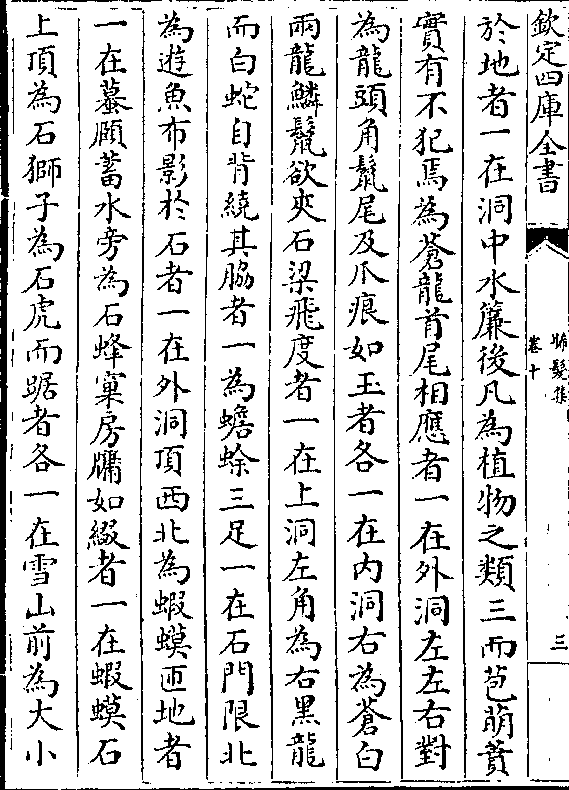 欽定四庫全書
晞髮集
卷十
三
於地者一在洞中水簾後凡為植物之類三而苞萌蕡
實有不犯焉為蒼龍首尾相應者一在外洞左左右對
為龍頭角鬛尾及爪痕如玉者各一在内洞右為蒼白
兩龍鱗鬛欲夾石梁飛度者一在上洞左角為右黑龍
而白蛇自背繞其脇者一為蟾蜍三足一在石門限北
為遊魚布影於石者一在外洞頂西北為蝦蟆匝地者
一在蟇頤蓄水旁為石蜂窠房牖如綴者一在蝦蟆石
上頂為石獅子為石虎而踞者各一在雪山前為大小